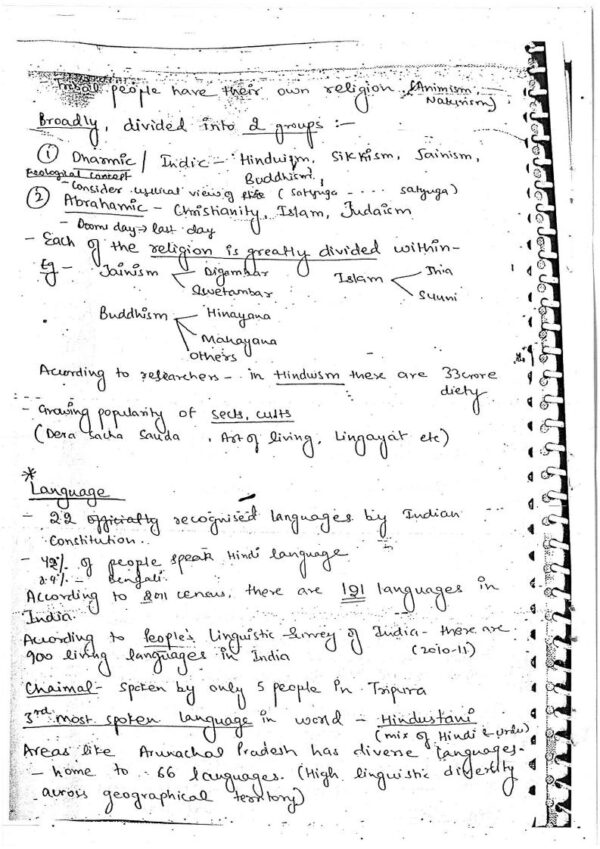 - Tribal people have their own religion (Animism, Naturism)
Broadly, divided into 2 groups :-
① Dharmic / Indic - Hinduism, Sikkism, Jainism,
Buddhism,
Ecological concept
- Consider cyclical view of (Satyuga - - - - satyuga)
② Abrahamic - Christianity, Islam, Judaism
- Dooms day → last day
- Each of the religion is greatly divided within-
Eg - Jainism Digambar Islam Shia
Swetambar Sunni
Buddhism Hinayana
Mahayana
Others
According to researchers - in Hinduism there are 33 crore
diety
- Growing popularity of sects, cults
(Dera Sacha Sauda , Art of living, Lingayat etc)
*
Language
- 22 officially recognised languages by Indian
Constitution.
- 42% of people speak Hindi language
8.4% - Bengali.
According to 2011 census, there are 121 languages in
India.
According to People's Linguistic Survey of India - there are
900 living languages in India (2010-11)
Chaimal - spoken by only 5 people in Tripura
3rd most spoken language in world - Hindustani
(mix of Hindi & Urdu)
Areas like Arunachal Pradesh has diverse languages -
- home to 66 languages. (High linguistic diversity
across geographical territory)